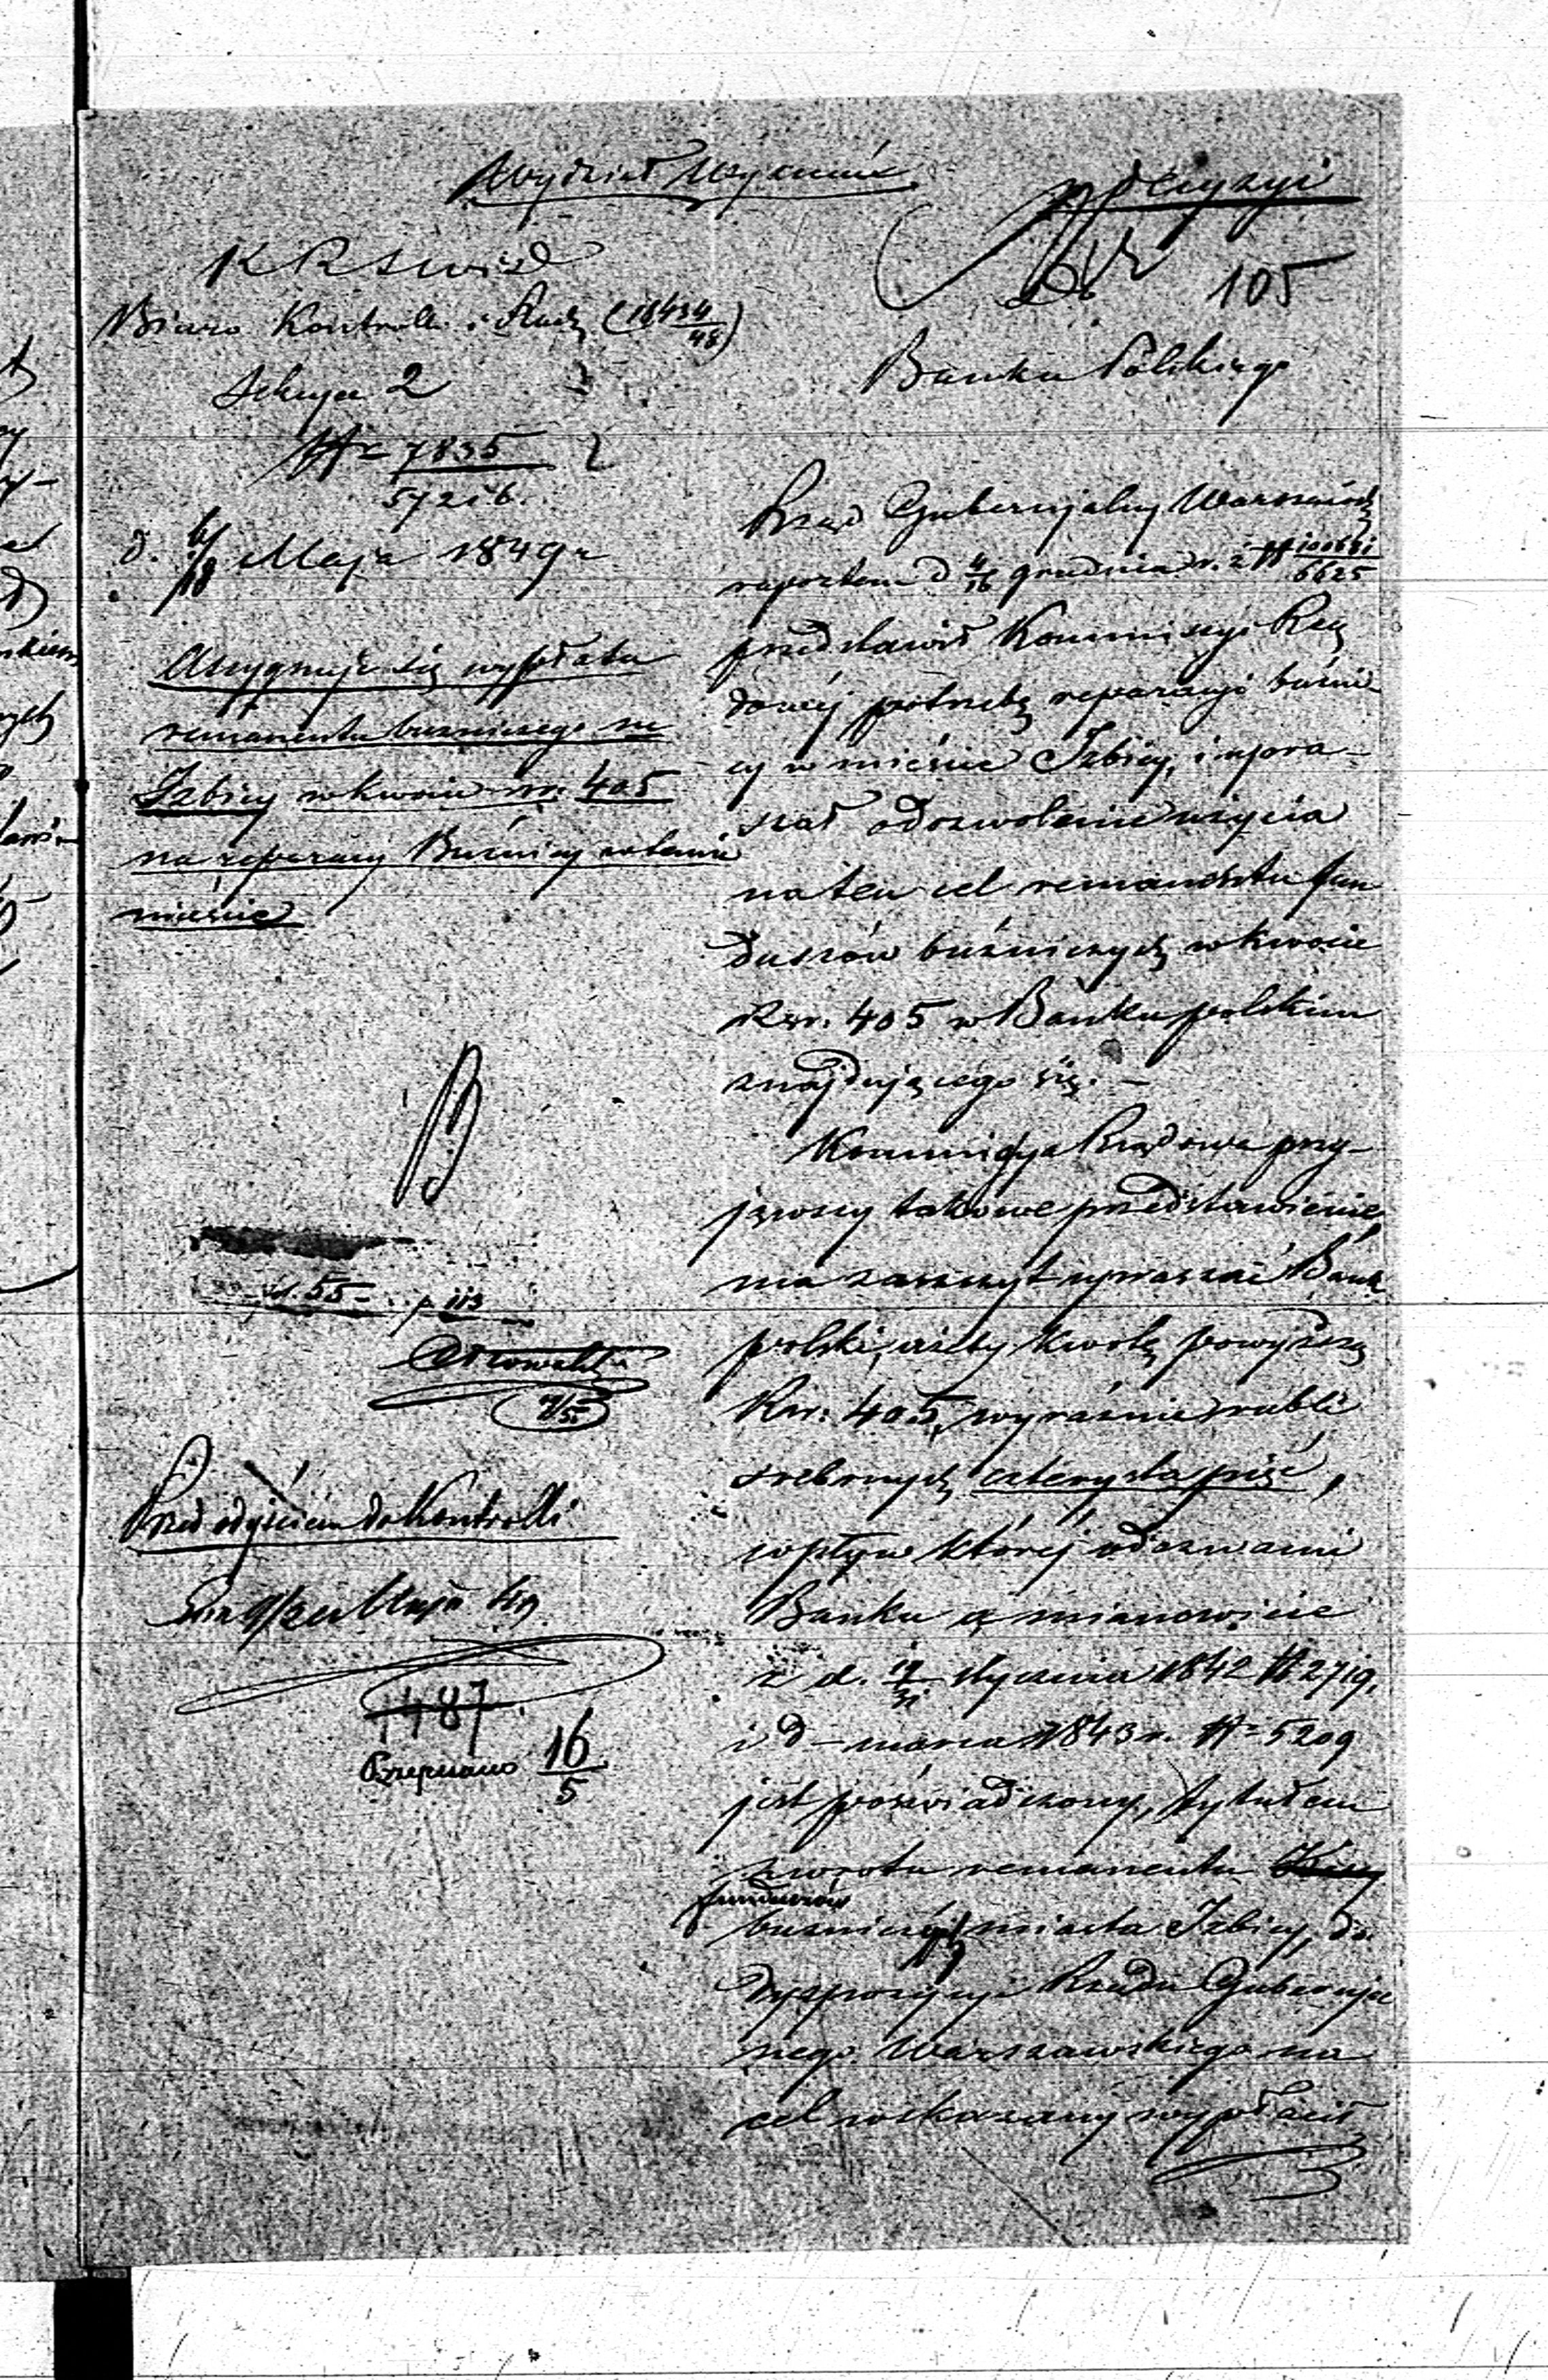 Wydział
decyzyi
105
K R S W i S D
Biuro Kontrolli i Rach (18434/48)
Sekcya 2
Do
Banku Polskiego
N 7835/57216
d. 6/18 Maja 1849 r
Assygnuje się wypłata
remanentu buzniczego m.
Izbicy w kwocie rsr. 405
na reperacyę Buźnicy w temże
mieście
p 113
Przed odejściem do Kontrolli
Maja 49
1487
Przepisano 16/5
Rząd Gubernijalny Warszawski
raportem d 4/16 grudnia r. z N 100681/6625
przedstawił Kommissyi Rzą
dowéj potrzebę reparacyi buźni
cy w mieście Izbicy, i upra-
szał o dozwolenie użycia
na ten cel remanentu fun
duszów buźniczych w kwocie
Rsr. 405 w Banku polskim
znajdującego się. –
Kommissya Rządowa przy-
jąwszy takowe przedstawienie,
ma zaszczyt upraszać Bank
polski, ażeby kwotę powyższą
Rsr: 405, wyraźnie rubli
srebrnych czterysta pięć,
wpływ któréj odezwami
Banku a mianowicie
z d. 19/31 stycznia 1842 N 2719,
i d – marca 1843 r. N 5209
jest poświadczony, tytułem
zwrotu remanentu
funduszów
buzniczych miasta Izbicy, do
dyspozycyi Rządu Gubernijal
nego Warszawskiego na
cel wskazany wypłacił